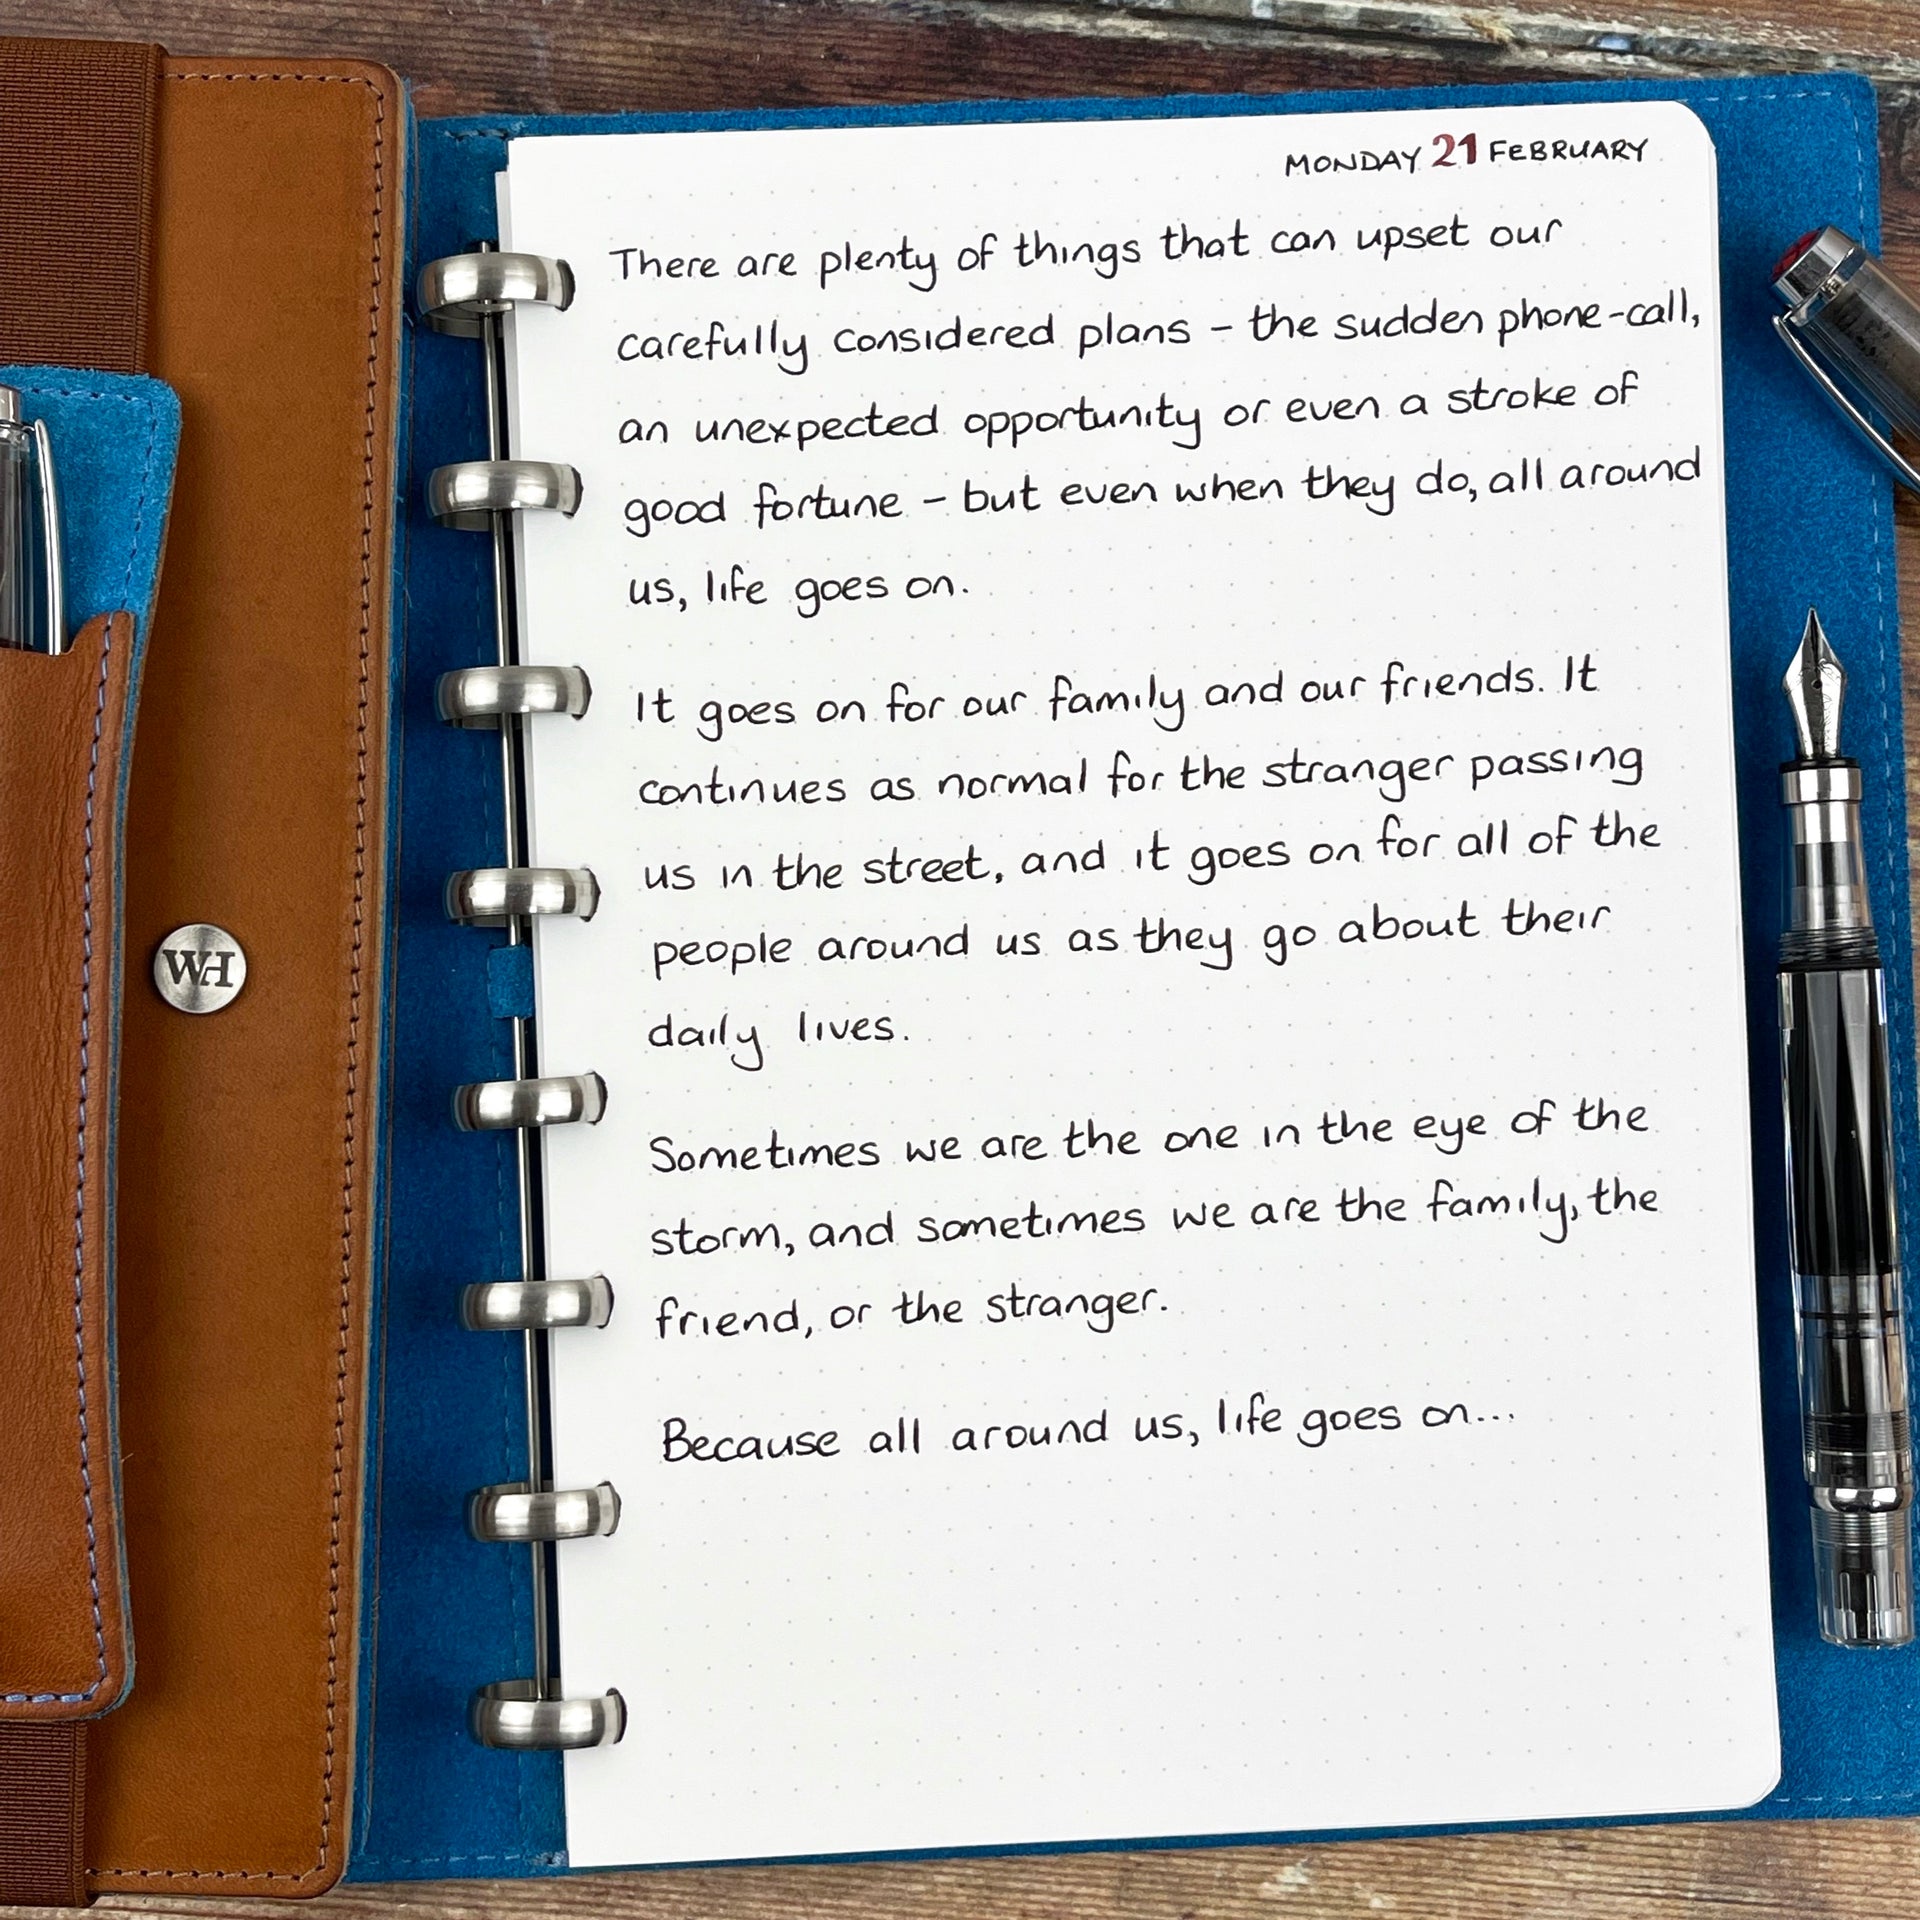 MONDAY 21 FEBRUARY
There are plenty of things that can upset our
carefully considered plans – the sudden phone-call,
an unexpected opportunity or even a stroke of
good fortune – but even when they do, all around
us, life goes on.
It goes on for our family and our friends. It
continues as normal for the stranger passing
us in the street, and it goes on for all of the
people around us as they go about their
daily lives.
Sometimes we are the one in the eye of the
storm, and sometimes we are the family, the
friend, or the stranger.
Because all around us, life goes on...
WH